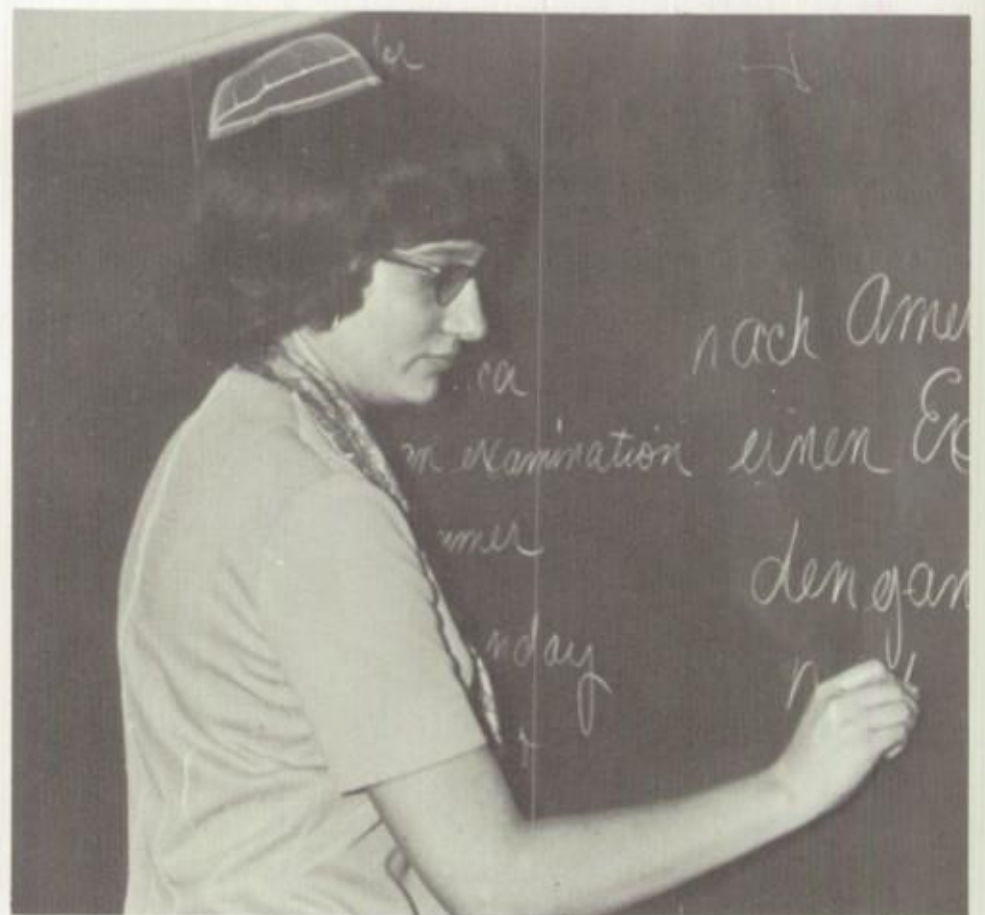 nach Amer
examination einen Ex
umer
den gan
nday